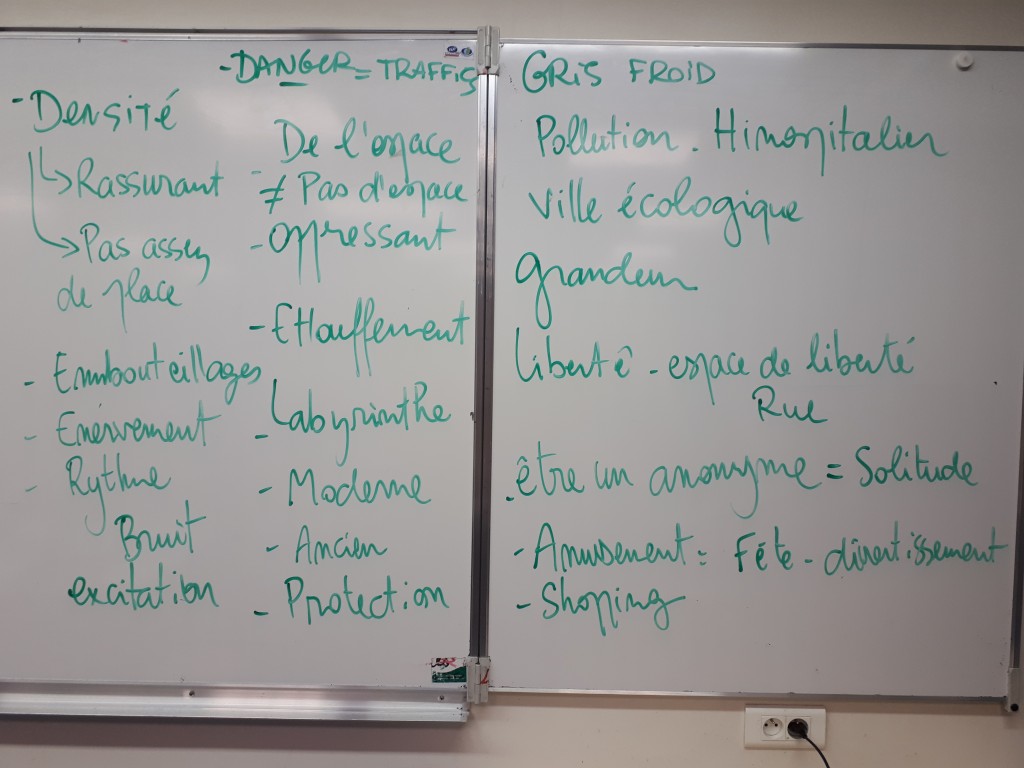 - Densité
↳ Rassurant
→ Pas assez
de place
- Emmbouteillages
- Enervement
- Rythme
Bruit
excitation
- DANGER = TRAFFIS
De l'espace
≠ Pas d'espace
- oppressant
- Ettouffement
- Labyrinthe
- Moderne
- Ancien
- Protection
GRIS FROID
Pollution . Himospitalier
Ville écologique
grandeur
Liberté - espace de liberté
Rue
. être un anonyme = Solitude
- Amusement = Fête - divertissement
- Shopping